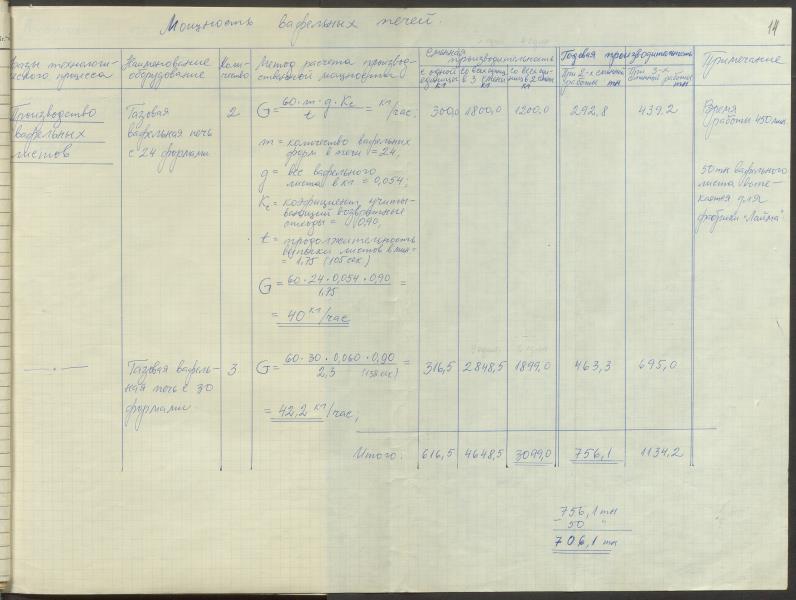 Мощность вафельных печей.
14
Фазы технологи-
ческого процесса
Наименование
оборудование
Коли-
чество
Метод расчета производ-
ственной мощности
Сменная
производительность
с одной
единицы
кг
со всех един.
в 3 смены
кг
со всех еди-
ниц в 2 смены
кг
Годовая производительность
При 2-х сменной
работы тн
При 3-х
сменной работы
тн
Примечание
Производство
вафельных
листов
Газовая
вафельная печь
с 24 формами
2
G = 60·m·g·Kc / t = кг/час.
300,0
1800,0
1200,0
292,8
439,2
Время
работы 450 мин.
m = количество вафельных
форм в печи = 24,
g = вес вафельного
листа в кг = 0,054;
Kc = коэфициент, учиты-
вающий возвратные
отходы = 0,90,
t = продолжительность
выпечки листов в мин =
= 1,75 (105 сек)
50 тн вафельного
листа
для
фабрики "Лайма"
G = 60·24·0,054·0,90 / 1,75 =
= 40 кг/час
— · —
Газовая вафель-
ная печь с 30
формами.
3
G = 60·30·0,060·0,90 / 2,3 (138 сек) =
316,5
2848,5
1899,0
463,3
695,0
= 42,2 кг/час,
Итого:
616,5
4648,5
3099,0
756,1
1134,2
756,1 тн
- 50 "
706,1 тн